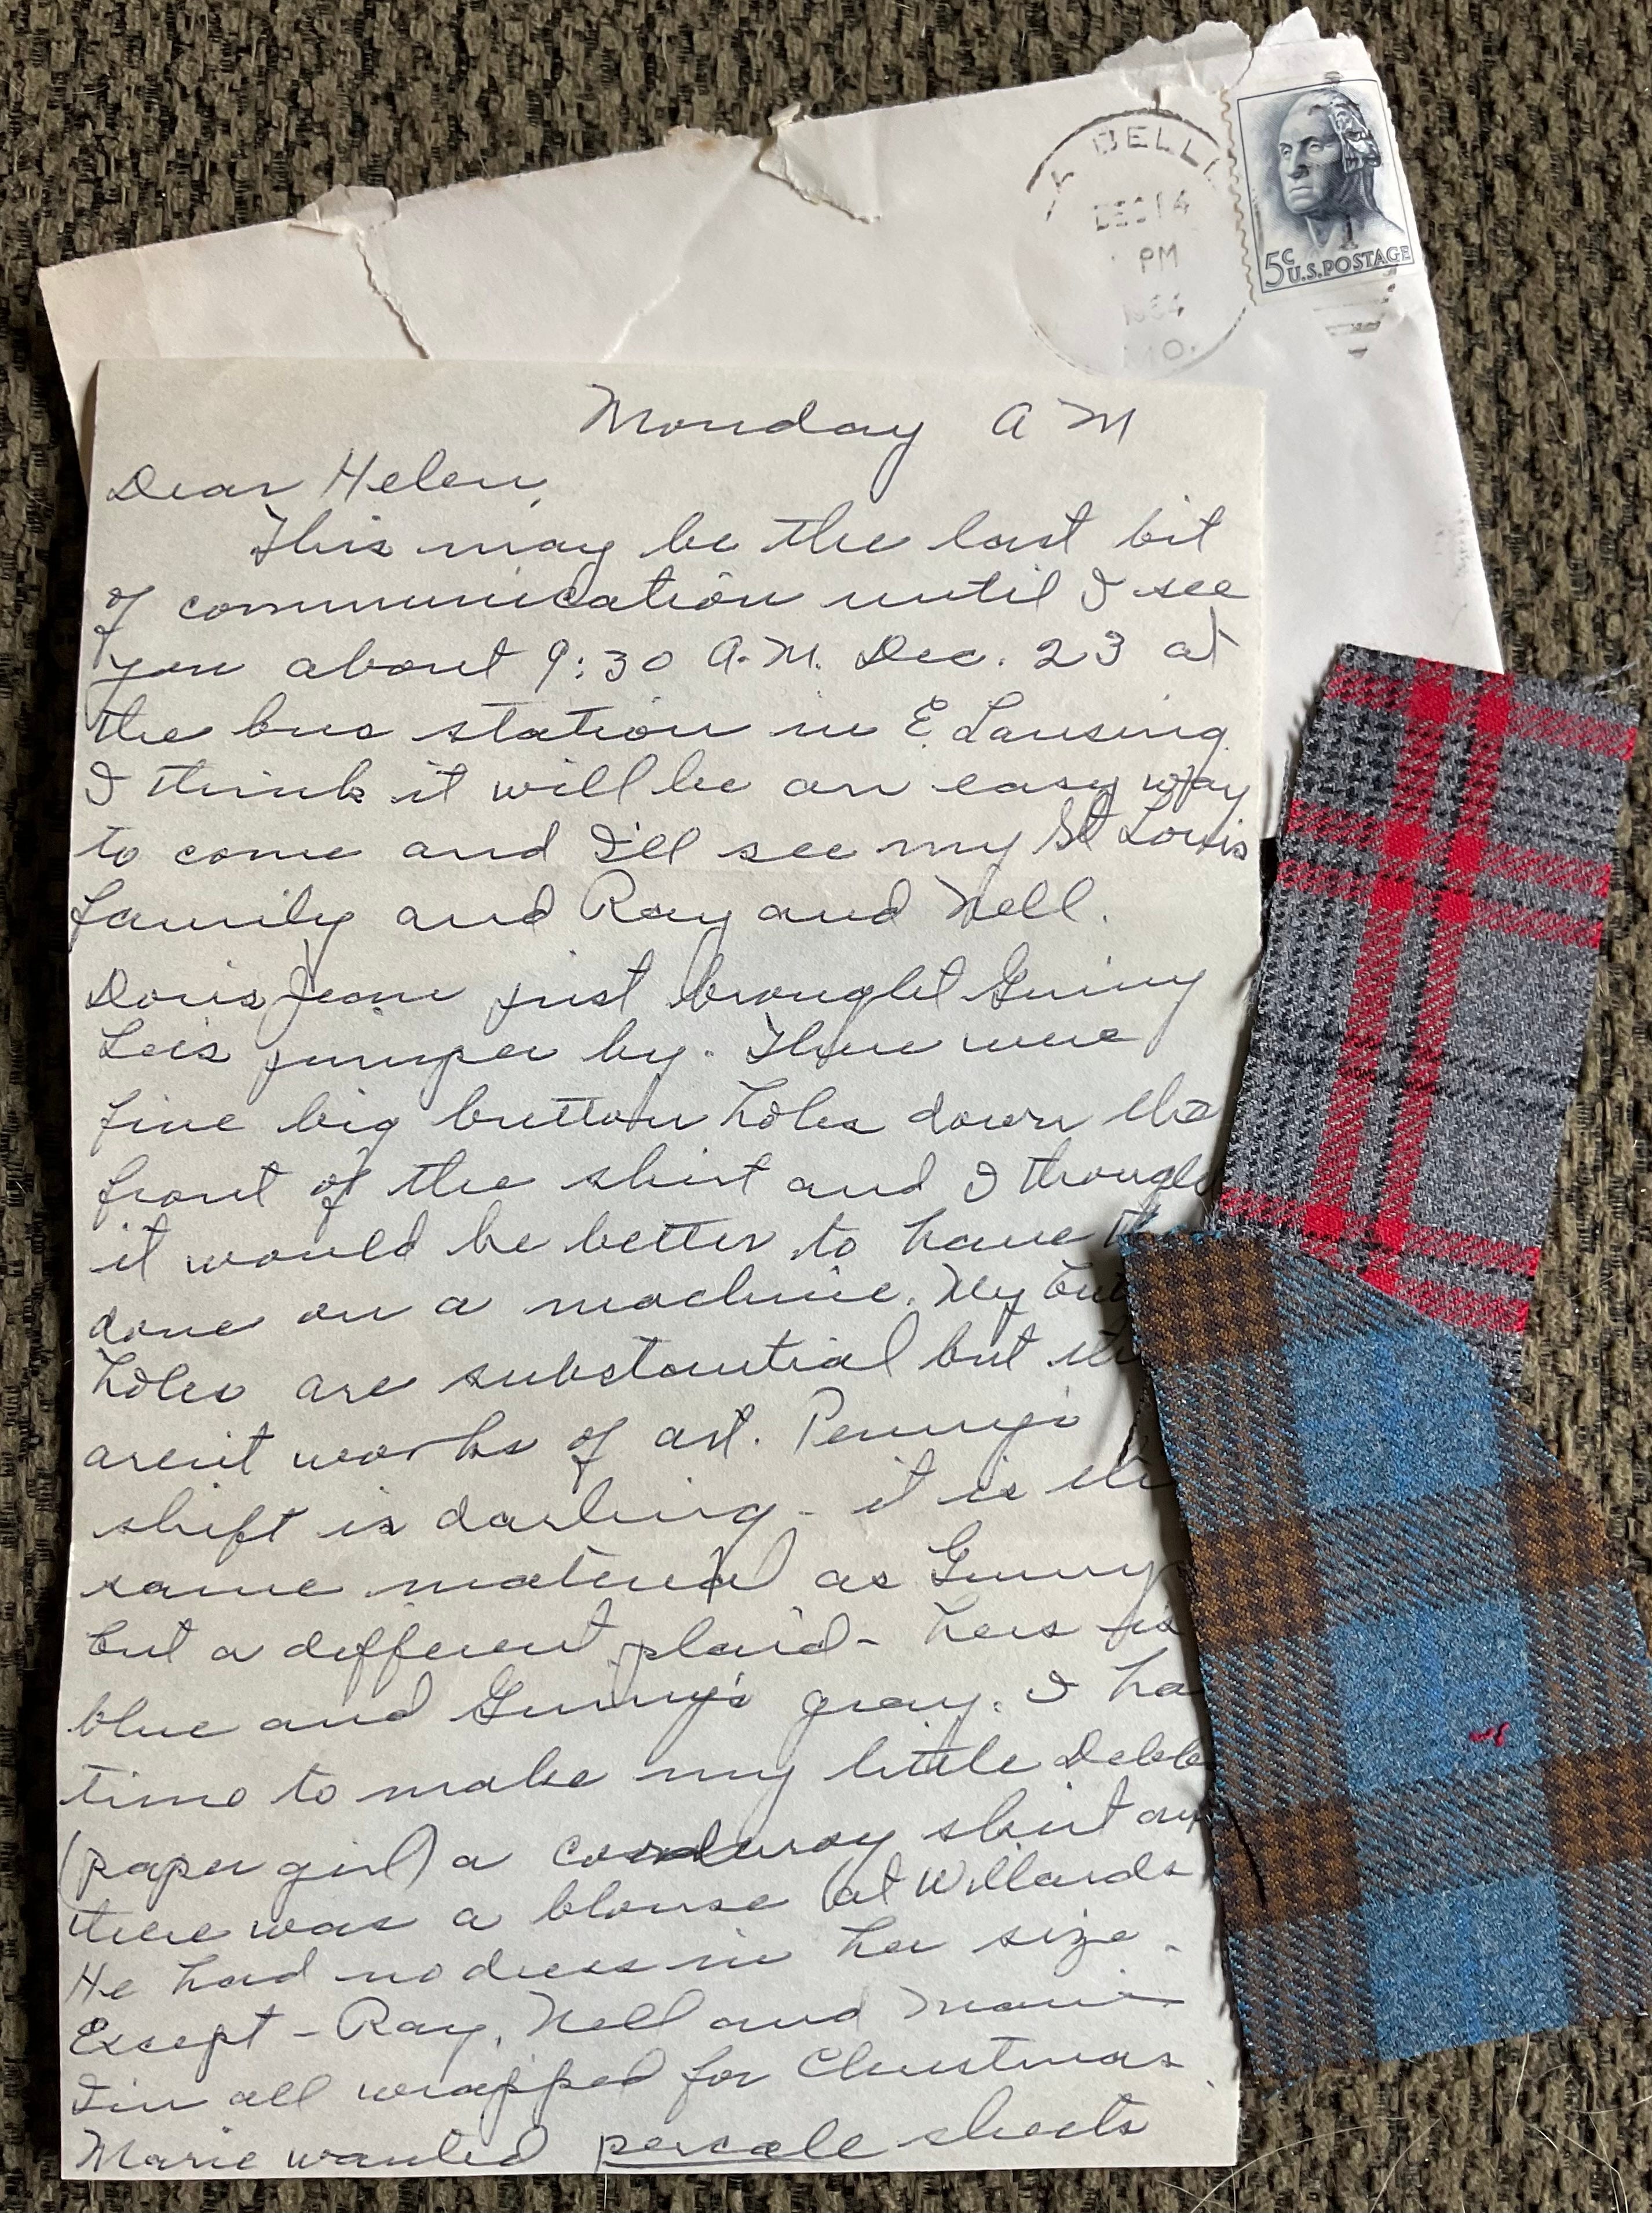 DELL
DEC 14
PM
1964
MO.
5c
U.S. POSTAGE
Monday AM
Dear Helen,
This may be the last bit
of communication until I see
you about 9:30 A.M. Dec. 23 at
the bus station in E. Lansing.
I think it will be an easy way
to come and I'll see my St Louis
family and Ray and Nell.
Doris Jean just brought Ginny
Lois jumper by. There were
five big button holes down the
front of the skirt and I though
it would be better to have th
done on a machine. My but
holes are substantial but the
aren't works of art. Penny's
shift is darling - it is the
same material as Ginny
but a different plaid - hers is
blue and Ginny's gray. I ha
time to make my little Debb
(paper girl) a corduroy skirt and
there was a blouse at Willards
He had no dress in her size.
Except - Ray, Nell and Marie
I'm all wrapped for Christmas.
Marie wanted percale sheets